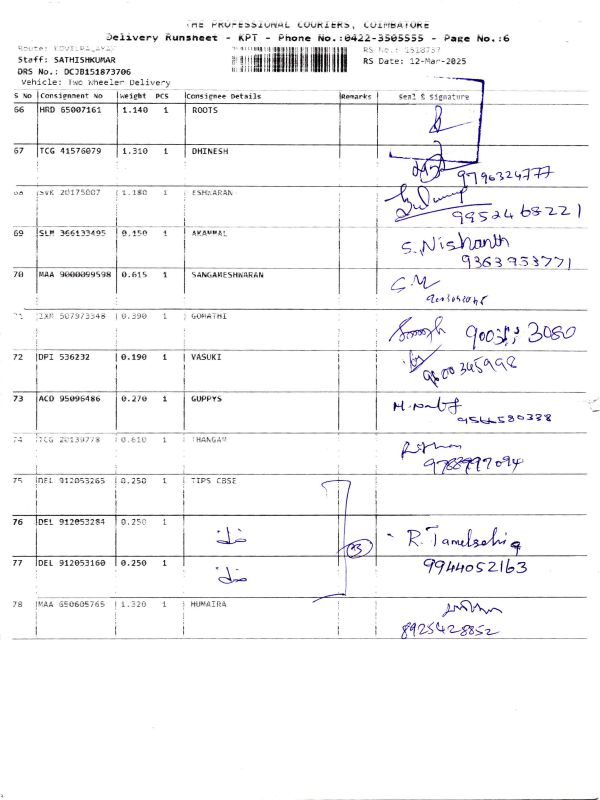 THE PROFESSIONAL COURIERS, COIMBATORE
Delivery Runsheet - KPT - Phone No.:0422-3505555 - Page No.:6
Route: KOVILPALAYAM
RS No.: 1518737
Staff: SATHISHKUMAR
RS Date: 12-Mar-2025
DRS No.: DCJB151873706
Vehicle: Two Wheeler Delivery
S No Consignment No Weight PCS Consignee Details Remarks Seal & Signature
66 HRD 65007161 1.140 1 ROOTS
67 TCG 41576079 1.310 1 DHINESH
9796324777
68 SVK 20175007 1.180 1 ESHWARAN
9952468221
69 SLM 366133495 0.150 1 AKAMMAL S. Nishanth
9363953771
70 MAA 9000099598 0.615 1 SANGAMESHWARAN
71 IXM 507973348 0.390 1 GOMATHI
72 DPI 536232 0.190 1 VASUKI
73 ACD 95096486 0.270 1 GUPPYS
9566580338
74 TCG 20139778 0.610 1 THANGAM
9788997094
75 DEL 912053265 0.250 1 TIPS CBSE
76 DEL 912053284 0.250 1
77 DEL 912053160 0.250 1 9944052163
78 MAA 650605765 1.320 1 HUMAIRA
8925428852